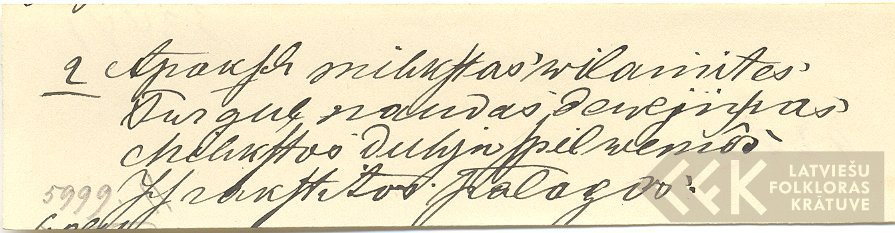 2 Apaksch mihkstas wilainites
Turgul naudas dewejinsas
Mihkstos duhju spilwenôs
Israkstitos palagos.
5999.
LATVIEŠU
FOLKLORAS
KRĀTUVE